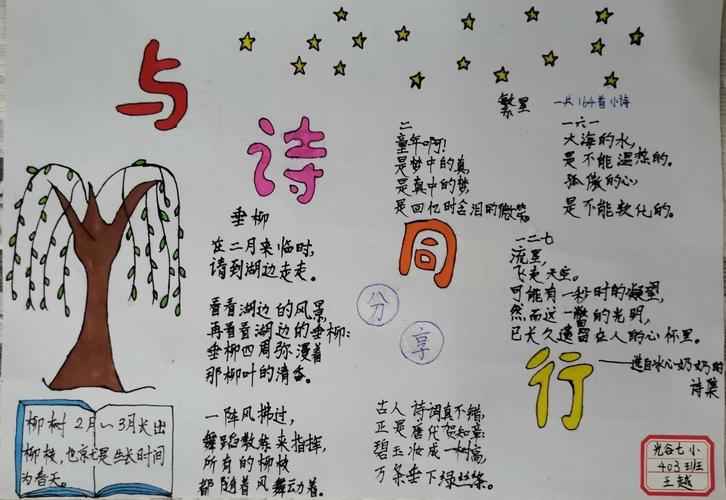 与诗同行
繁星
一共164首小诗
二
童年啊!
是梦中的真,
是真中的梦,
是回忆时含泪的微笑。
一六一
大海的水,
是不能温热的。
孤傲的心
是不能软化的。
一二七
流星,
飞走天空,
可能有一秒时的凝望,
然而这一瞥的光明,
已长久遗留在人的心怀里。
——选自冰心奶奶的
诗集
分享
垂柳
在二月来临时,
请到湖边走走。
看看湖边的风景,
再看看湖边的垂柳:
垂柳四周弥漫着
那柳叶的清香。
一阵风拂过,
舞蹈教练来指挥,
所有的柳枝
都随着风舞动着。
古人诗词真不错,
正是唐代贺知章:
碧玉妆成一树高,
万条垂下绿丝绦。
柳树2月~3月长出
柳枝,也就是生长时间
为春天。
光谷七小
403班
王越